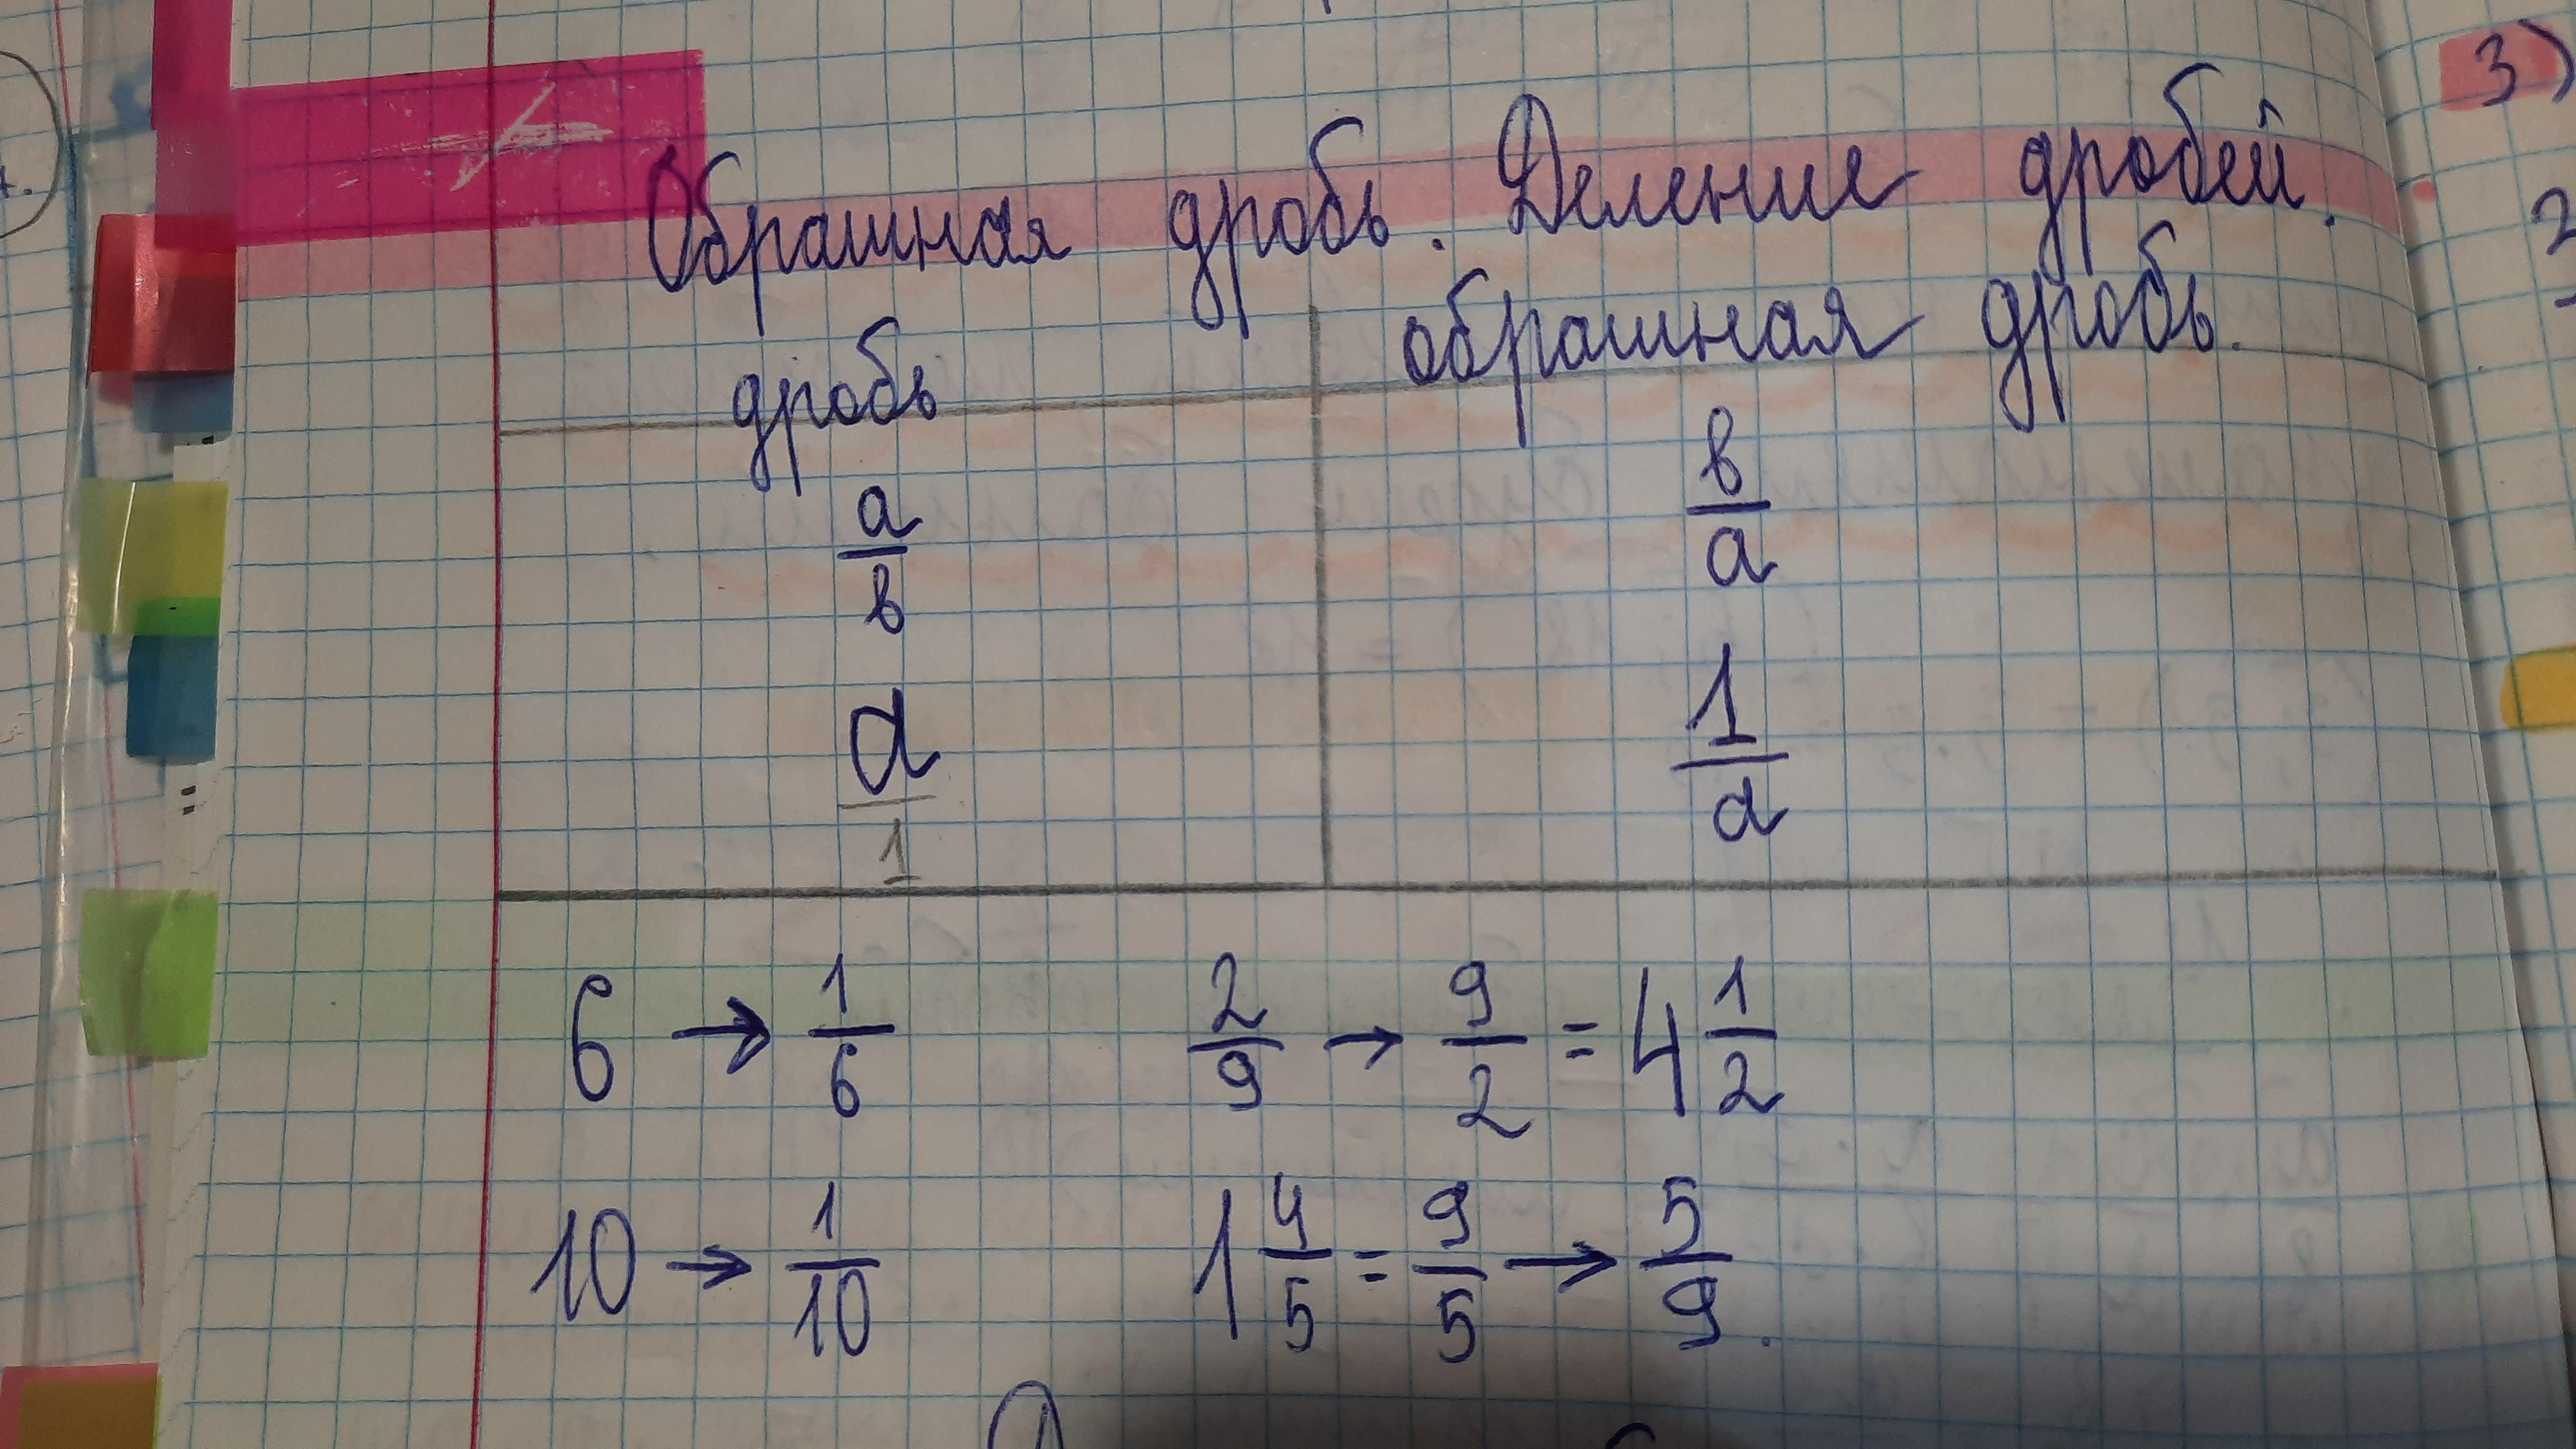 Обратная дробь. Деление дробей.
дробь обратная дробь.
a/b b/a
a/1 1/a
6 → 1/6 2/9 → 9/2 = 4 1/2
10 → 1/10 1 4/5 = 9/5 → 5/9.
3)
2